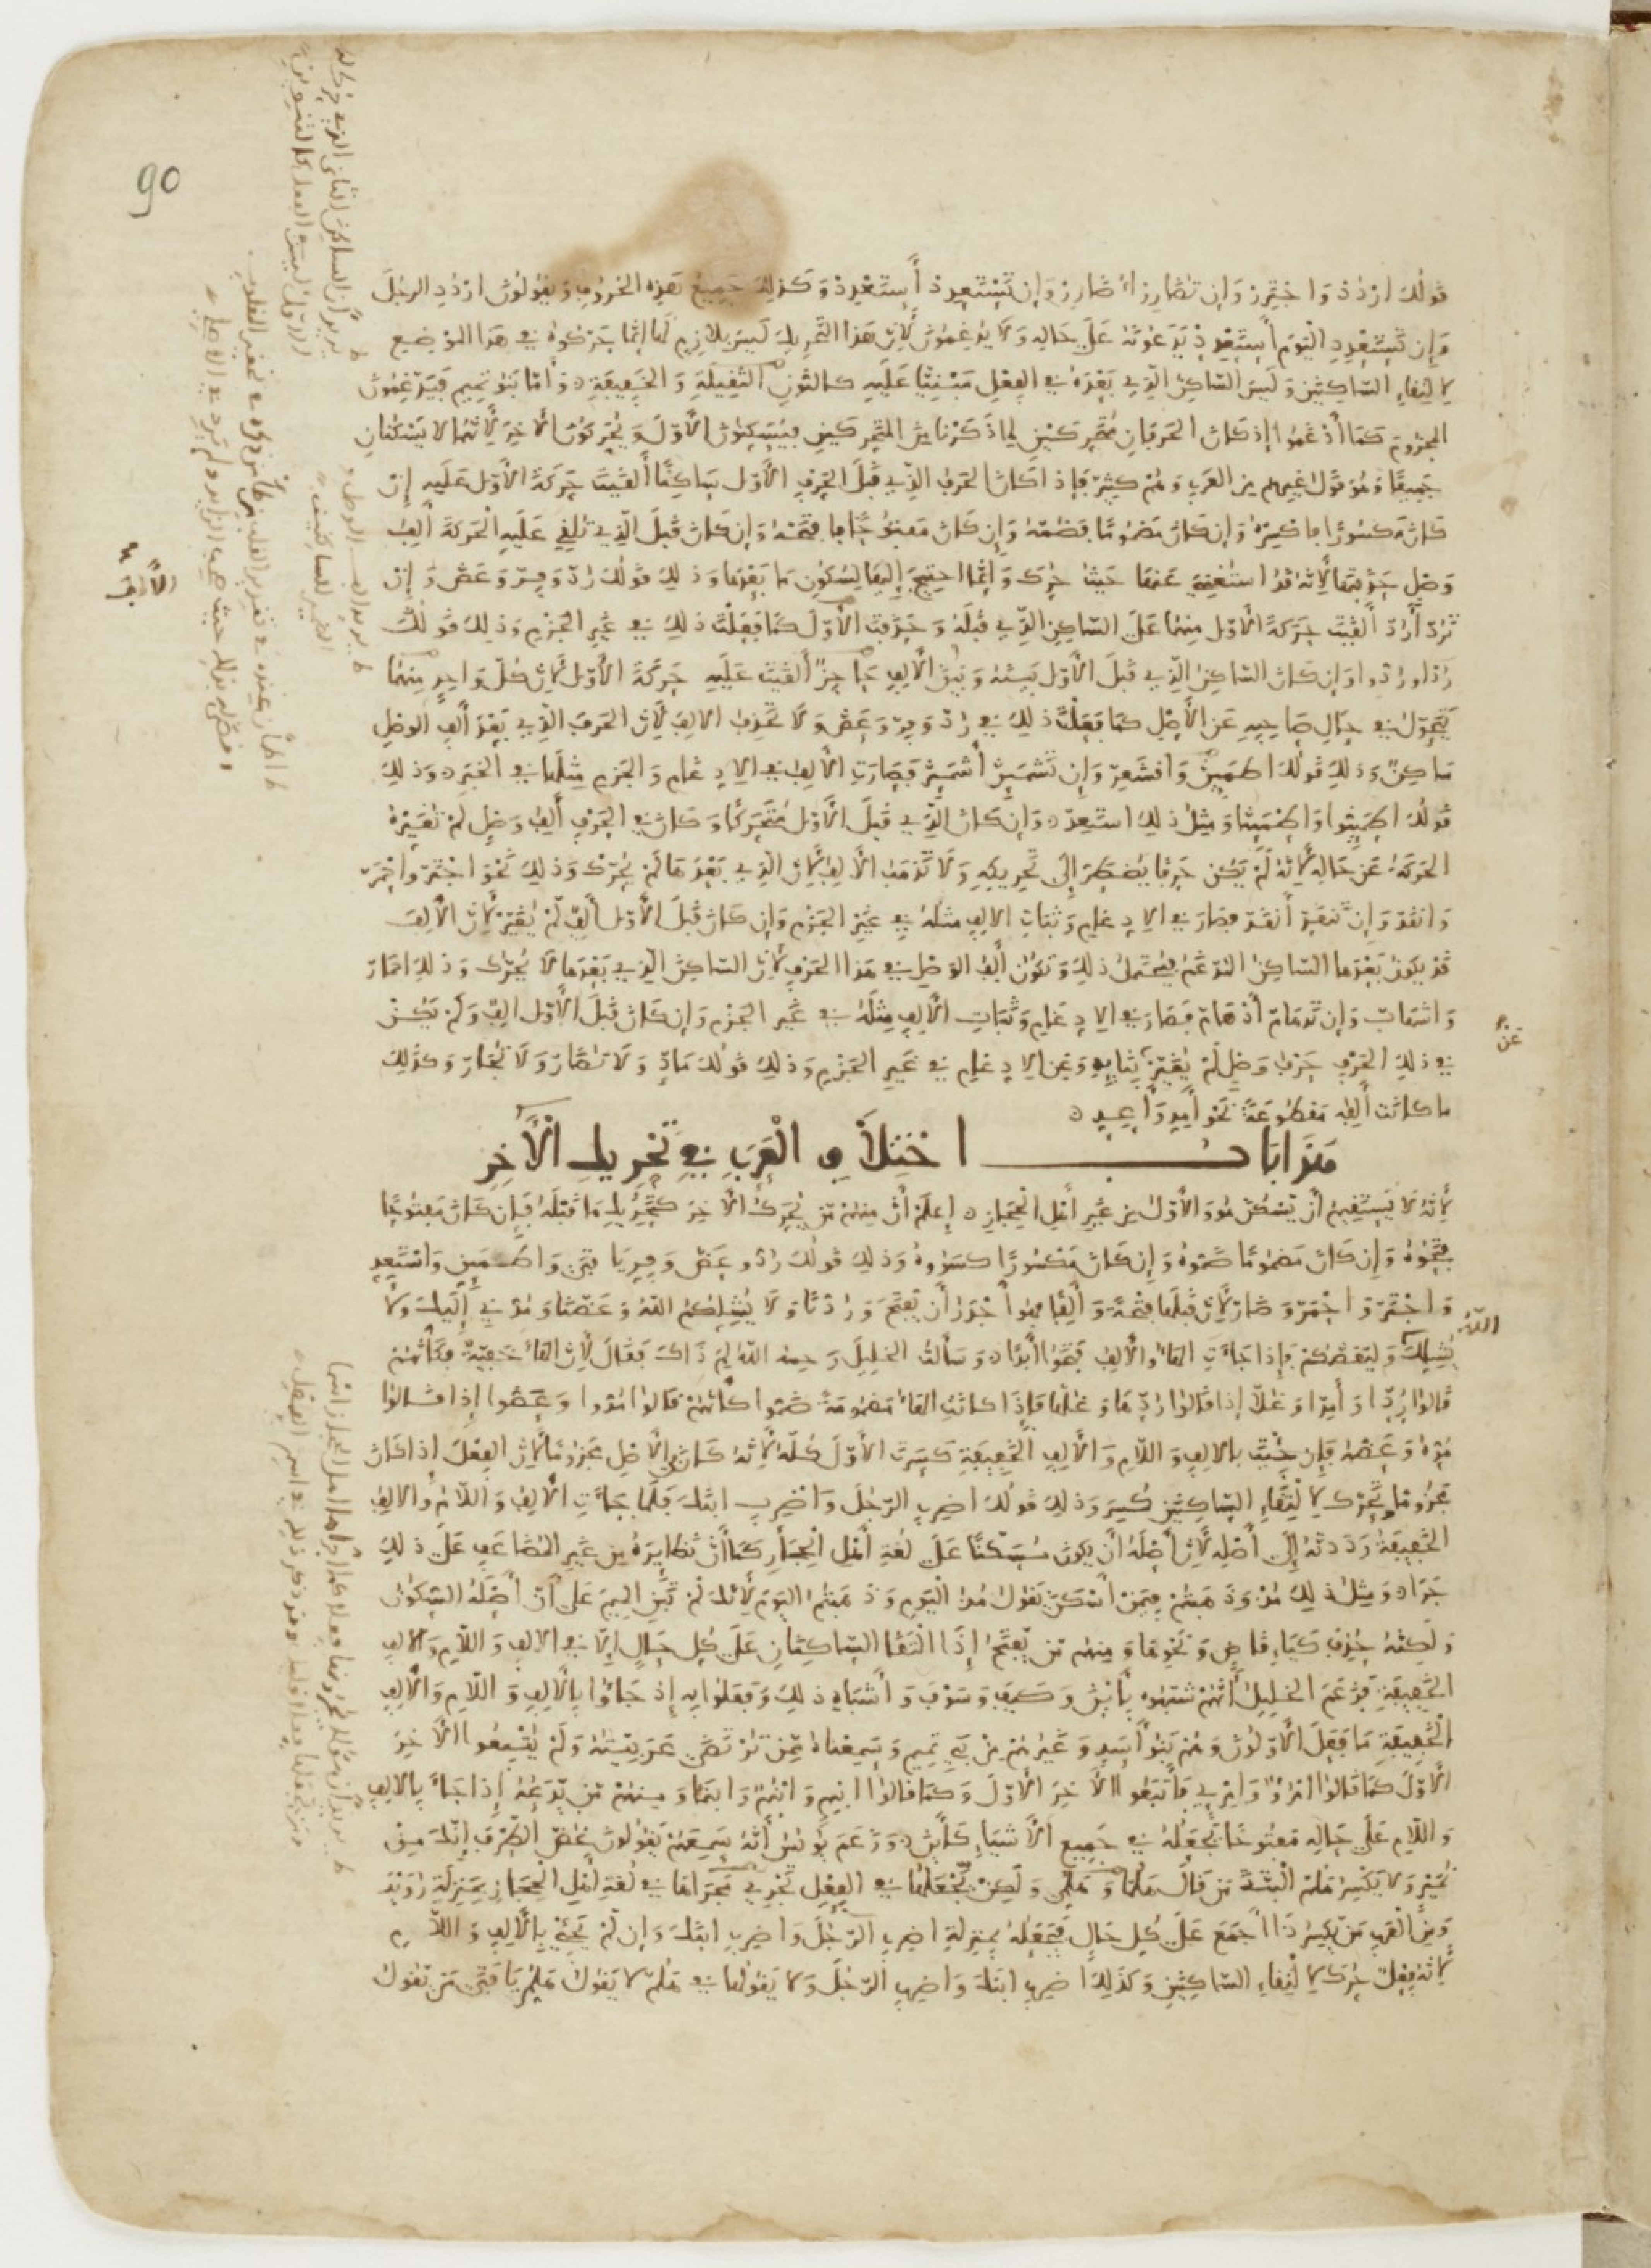 قولك ارْدُدْ وَاجْتَرِرْ وَإن تُضَارِرْ أُضَارِرْ وَإن تَسْتَعْدِدْ أَسْتَعْدِدْ وَكَذلكَ جميعُ هَذِه الحُرُوفِ وَيقولونَ ارْدُدِ الرجُلَ
وَإن تَسْتَعْدِدِ الْيَوْمَ أَسْتَعْدِدْ يَدَعونَهُ عَلَى حَالِهِ وَلَا يُدْغِمُونَ لأَنّ هَذا التحْرِيكَ لَيسَ بِلازِمٍ لَها إنّما حَرّكُوهُ في هَذا الموْضِعِ
لالْتِقَاءِ السّاكِنَيْنِ وَلَيسَ السّاكِنُ الّذِي بَعْدَهُ في الفِعْلِ مَبْنِيًّا عَلَيْهِ كالنُّونِ الثّقِيلَةِ وَالخَفِيفَةِ وَأَمّا بَنُو تَمِيمٍ فَيُدْغِمُونَ
المجْزُومَ كَمَا أَدْغَمُوا إذ كانَ الحَرْفَانِ مُتَحَرّكَيْنِ لِمَا ذَكَرْنا مِنَ المتَحَرّكَيْنِ فيُسَكّنُونَ الأَوّلَ وَيُحَرّكُونَ الآخِرَ لأَنّهُما لا يَسْكُنَانِ
جَمِيعًا وَهُوَ قَوْلُ غَيْرِهِمْ مِنَ العَرَبِ وَهُمْ كَثِيرٌ فَإذا كَانَ الحَرْفُ الّذِي قَبْلَ الحَرْفِ الأَوّلِ سَاكِنًا أَلْقَيْتَ حَرَكَةَ الأَوّلِ عَلَيْهِ إنْ
كَانَ مَكسُورًا فاكْسِرْهُ وَإن كَانَ مَضْمُومًا فَضُمّهُ وَإن كَانَ مَفْتُوحًا فافْتَحْهُ وَإن كَانَ قَبْلَ الّذِي تُلْقِي عَلَيْهِ الحَرَكَةَ أَلِفُ
وَصْلٍ حَذَفْتَها لأَنّهُ قَدُ اسْتُغْنِيَ عَنْهَا حَيْثُ حُرّكَ وَإنّمَا احْتِيجَ إلَيْها لِسُكُونِ مَا بَعْدَها وَذلِكَ قَوْلُكَ رُدّ وَفِرّ وَعَضّ وَإنْ
تَرُدّ أَرُدّ أَلْقَيْتَ حَرَكَةَ الأَوّلِ مِنْهُمَا عَلَى السّاكِنِ الّذِي قَبْلَهُ وَحَذَفْتَ الأَلِفَ كَمَا فَعَلْتَ ذلِكَ في غَيْرِ الجَزْمِ وَذلِكَ قَوْلُكَ
رُدّا وَرُدّوا وَإن كَانَ السّاكِنُ الّذِي قَبْلَ الأَوّلِ بَيْنَهُ وَبَيْنَ الأَلِفِ حَاجِزٌ أَلْقَيْتَ عَلَيْهِ حَرَكَةَ الأَوّلِ لأَنّ كُلّ وَاحِدٍ مِنْهُمَا
يَتَحَوّلُ في حَالِ صَاحِبِهِ عَنِ الأَصْلِ كمَا فَعَلْتَ ذلِكَ في رُدّ وَفِرّ وَعَضّ وَلا تَحْذِفُ الألِفَ لأَنّ الحَرْفَ الّذِي بَعْدَ أَلِفِ الوَصْلِ
سَاكِنٌ وَذلِكَ قَوْلُكَ اطْمَئِنّ وَاقْشَعِرّ وَإن تَشْمَئِزّ أَشْمَئِزّ فَصَارَتِ الأَلِفُ في الإدْغَامِ وَالجَزْمِ مِثْلَها في الخَبَرِ وَذلِكَ
قَوْلُكَ اطْمَئِنّوا وَاطْمَئِنّا وَمِثْلُ ذلِكَ اسْتَعِدّ وَإن كَانَ الّذِي قَبْلَ الأَوّلِ مُتَحَرّكًا وَكَانَ في الحَرْفِ أَلِفُ وَصْلٍ لَمْ تُغَيّرْهُ
الحَرَكَةُ عَنْ حَالِهِ لأَنّهُ لَمْ يَكُنْ حَرْفًا يُضْطَرّ إلَى تَحْرِيكِهِ وَلا تَذْهَبُ الأَلِفُ لأَنّ الّذِي بَعْدَهَا لَمْ يُحَرّكْ وَذلِكَ نَحْوُ اجْتَرّ وَاحْمَرّ
وَانقَدّ وَإن تَنقَدّ أَنقَدّ فصَارَ في الإدْغَامِ وَثَبَاتِ الألِفِ مِثْلَهُ في غَيْرِ الجَزْمِ وَإن كَانَ قَبْلَ الأَوّلِ أَلِفٌ لَمْ تُغَيّرْ لأَنّ الأَلِفَ
قَدْ يَكونُ بَعْدَها السّاكِنُ المُدْغَمُ فيُحْتَمَلُ ذلِكَ وَتَكُونُ أَلِفُ الوَصْلِ في هَذا الحَرْفِ لأَنّ السّاكِنَ الّذِي بَعْدَها لا يُحَرّكُ وَذلِكَ احْمَارّ
وَاشْهَابّ وَإن تَدْهَامّ أَدْهَامّ فَصَارَ في الإدْغَامِ وَثَبَاتِ الأَلِفِ مِثْلَهُ في غَيْرِ الجَزْمِ وَإن كَانَ قَبْلَ الأَوّلِ أَلِفٌ وَلَمْ يَكُنْ
في ذلِكَ الحَرْفِ حَرْفُ وَصْلٍ لَمْ يُغَيّرْ عَن بِنَائِهِ وَعَنِ الإدْغَامِ في غَيْرِ الجَزْمِ وَذلِكَ قَوْلُكَ مَادّ وَلا تُضَارّ وَلا تُجَارّ وَكَذلِكَ
ما كانَتْ أَلِفُهُ مَقْطُوعَةً نَحْوُ أَمِدّ وَأَعِدّ
هَذا بَابُ اخْتِلَافِ الْعَرَبِ فِي تَحْرِيكِ الْآخِرِ
لأَنّهُ لَا يَسْتَقِيمُ أَنْ يَسْكُنَ هُوَ وَالأَوّلُ مِنْ غَيْرِ أَهْلِ الْحِجَازِ إعْلَمْ أَنّ مِنْهُمْ مَنْ يُحَرّكُ الآخِرَ كَتَحْرِيكِ مَا قَبْلَهُ فَإن كَانَ مَفْتُوحًا
فَتَحُوهُ وَإن كَانَ مَضْمُومًا ضَمّوهُ وَإن كَانَ مَكْسُورًا كَسَرُوهُ وَذلِكَ قَوْلُكَ رُدّ وَعَضّ وَفِرّ يَا فَتَى وَاطْمَئِنّ وَاسْتَعِدّ
وَاجْتَرّ وَاحْمَرّ وَضَارّ لأَنّ قَبْلَها فَتْحَةً وَأَلِفًا فهْوَ أَجْدَرُ أَن تُفْتَحَ وَرُدّنَا وَلا يُشِلّكُمُ اللّهُ وَعَضّنَا وَمُدّنِي إلَيْكَ وَلا
يُشِلّكَ اللّهُ وَلْيَعَضّكُمْ فإذا جَاءَتِ الهَاءُ وَالأَلِفُ فَتَحُوا أَبَدًا وَسَأَلْتُ الخَلِيلَ رَحِمَهُ اللّهُ لِمَ ذَاكَ فَقَالَ لأَنّ الهَاءَ خَفِيّةٌ فَكَأَنّهُمْ
قَالُوا رُدّا وَأَمِدّا وَغُلّا إذا قَالُوا رُدّهَا وَغُلّهَا فَإذَا كانَتِ الهَاءُ مَضْمُومَةً ضَمّوا كَأَنّهُمْ قَالُوا مُدّوا وَعَضّوا إذا قَالُوا
مُدّهُ وَعَضّهُ فَإن جِئْتَ بالألِفِ وَاللّامِ وَالأَلِفِ الخَفِيفَةِ كَسَرْتَ الأَوّلَ كُلّهُ لأَنّهُ كَانَ في الأَصْلِ مَجْزُومًا لأَنّ الفِعْلَ إذا كَانَ
مَجْزُومًا فَحُرّكَ لالْتِقَاءِ السّاكِنَيْنِ كُسِرَ وَذلِكَ قَوْلُكَ اضْرِبِ الرّجُلَ وَاضْرِبِ ابْنَكَ فَلَمّا جَاءَتِ الأَلِفُ وَاللّامُ وَالألِفُ
الخَفِيفَةُ رَدَدْتَهُ إلَى أَصْلِهِ لأَنّ أَصْلَهُ أَنْ يكونَ مُسَكّنًا عَلَى لُغَةِ أَهْلِ الْحِجَازِ كَمَا أَنّ نَظَائِرَهُ مِنْ غَيْرِ المُضَاعَفِ عَلَى ذلِكَ
جَرَى وَمِثْلُ ذلِكَ مُذْ وَذَهَبْتُمْ فِيمَنْ أَسْكَنَ تَقُولُ مُذُ الْيَوْمِ وَذَهَبْتُمُ اليَوْمَ لأَنّكَ لَمْ تَبْنِ المِيمَ عَلَى أَنّ أَصْلَهُ السّكُونُ
وَلَكِنّهُ حُذِفَ كَيَاءِ قَاضٍ وَنَحْوِهَا وَمِنْهُمْ مَنْ يَفْتَحُ إذَا الْتَقَى السّاكِنَانِ عَلَى كُلّ حَالٍ إلّا في الألِفِ وَاللّامِ وَالألِفِ
الخَفِيفَةِ فَزَعَمَ الخَلِيلُ أَنّهُمْ شَبّهُوهُ بِأَيْنَ وَكَيْفَ وَسَوْفَ وَأَشْبَاهِ ذلِكَ وَفَعَلُوا بِهِ إذْ جَاءُوا بِالأَلِفِ وَاللّامِ وَالأَلِفِ
الْخَفِيفَةِ مَا فَعَلَ الأَوّلُونَ وَهُمْ بَنُو أَسَدٍ وَغَيْرُهُمْ مِنْ بَنِي تَمِيمٍ وَسَمِعْنَاهُ مِمّنْ تُرْضَى عَرَبِيّتُهُ وَلَمْ يُتْبِعُوا الآخِرَ
الأَوّلَ كَمَا قَالُوا امْرُؤٌ وَامْرِئٍ فَأَتْبَعُوا الآخِرَ الأَوّلَ وَكَمَا قَالُوا ابْنِمٍ وَابْنُمٌ وَابْنَمًا وَمِنْهُمْ مَنْ يَدَعُهُ إذا جَاءَ بِالألِفِ
وَاللّامِ عَلَى حَالِهِ مَفْتُوحًا يَجْعَلُهُ في جَمِيعِ الأَشْيَاءِ كَأَيْنَ وَزَعَمَ يُونُسُ أَنّهُ سَمِعَهُمْ يَقُولُونَ غُضّ الطّرْفَ إنّكَ مِنْ
نُمَيْرٍ وَلا يَكْسِرُ هَلُمّ الْبَتّةَ مَنْ قَالَ هَلُمّا وَهَلُمّي وَلَكِنْ يَجْعَلُهَا في الفِعْلِ تَجْرِي مَجْرَاهَا في لُغَةِ أَهْلِ الْحِجَازِ بِمَنْزِلَةِ رُوَيْدَ
وَمِنَ الْعَرَبِ مَنْ يَكْسِرُ ذَا أَجْمَعَ عَلَى كُلّ حَالٍ فَيَجْعَلُهُ بِمَنْزِلَةِ اضْرِبِ الرّجُلَ وَاضْرِبِ ابْنَكَ وَإن لَمْ يَجِئْ بِالأَلِفِ وَاللّامِ
لأَنّهُ فِعْلٌ حُرّكَ لالْتِقَاءِ السّاكِنَيْنِ وَكَذَلِكَ اضْرِبِ ابْنَكَ وَاضْرِبِ الرّجُلَ وَلا يَقُولُهَا في هَلُمّ لا يَقُولُ هَلُمّ يَا فَتَى مَنْ يَقُولُ
90